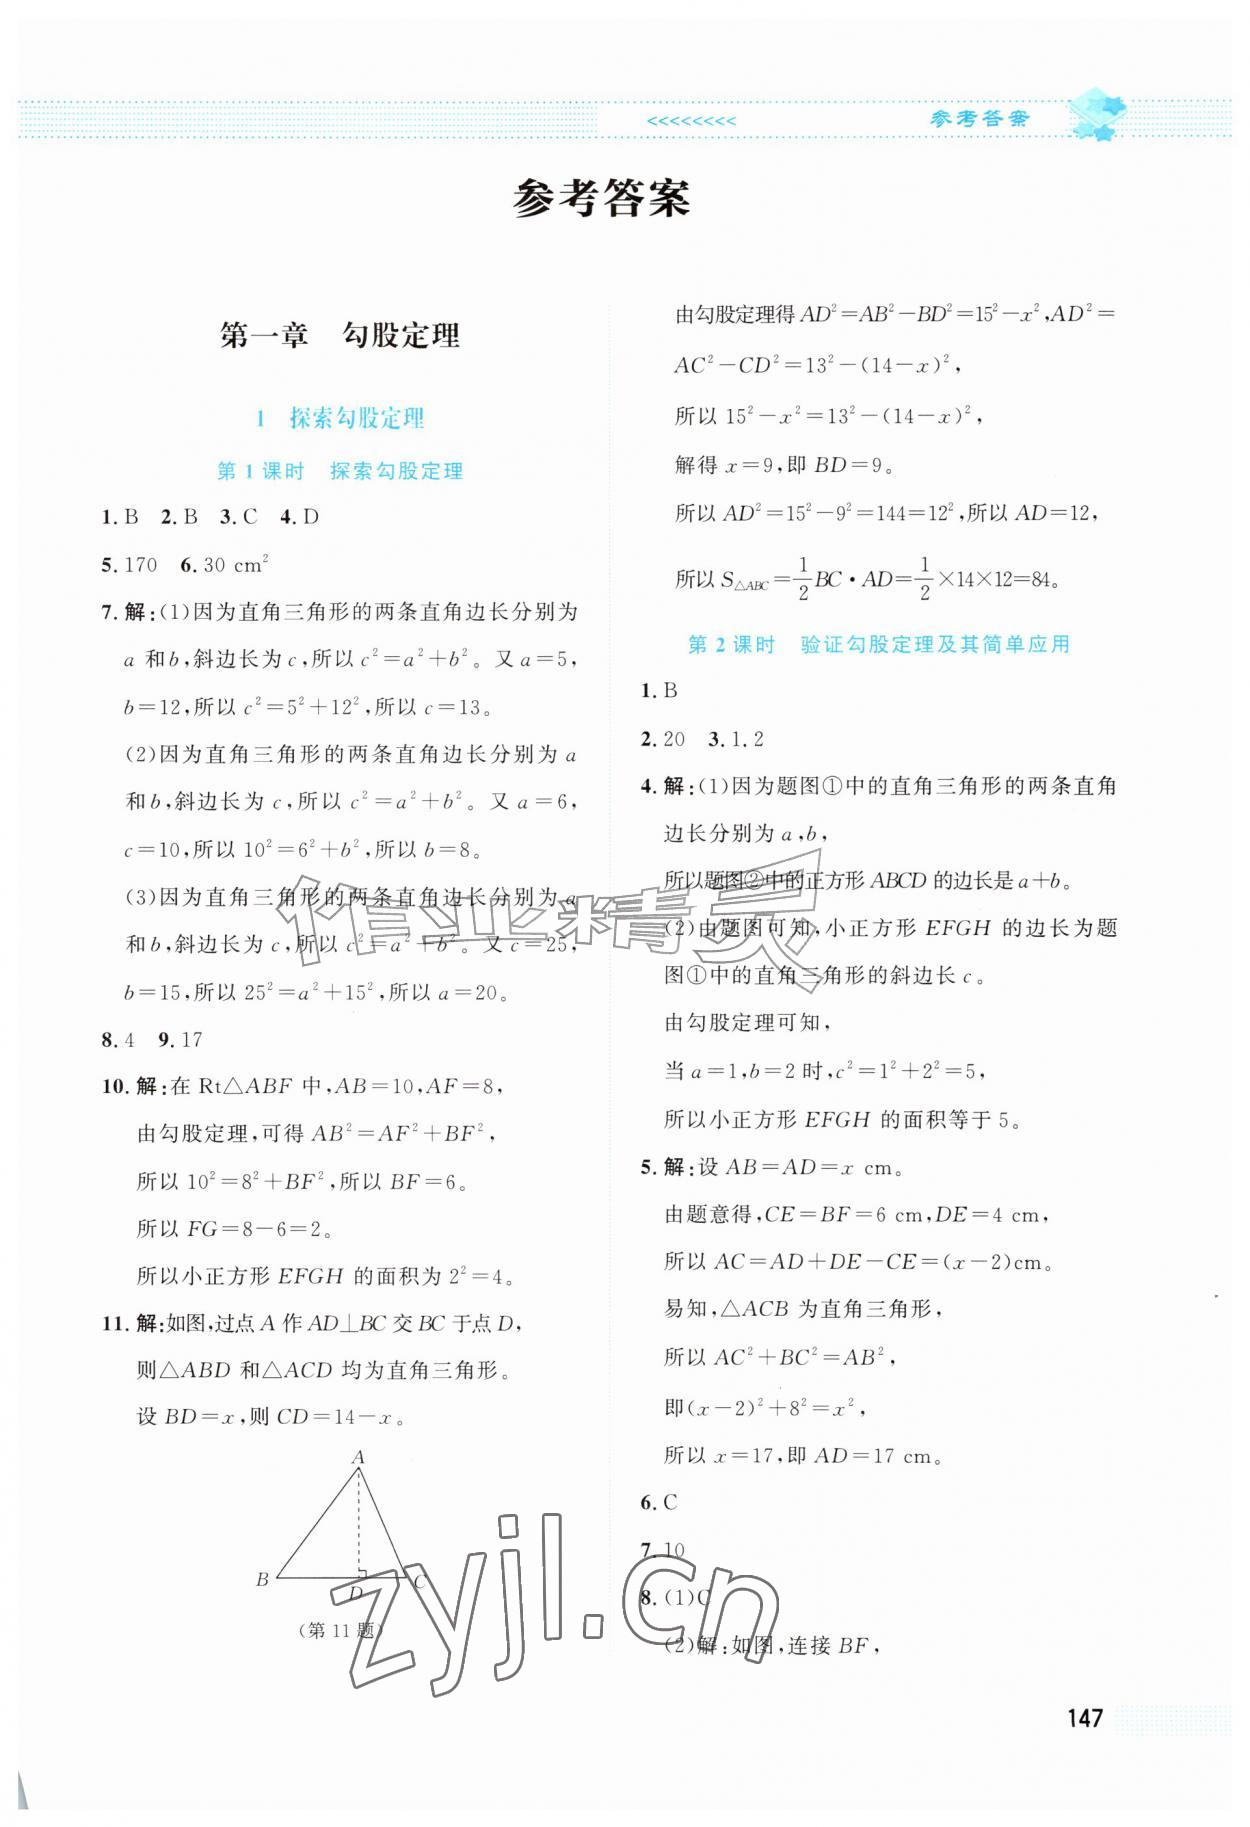 <<<<<<<<
参考答案
参考答案
第一章 勾股定理
1 探索勾股定理
第1课时 探索勾股定理
1.B 2.B 3.C 4.D
5.170 6.30 cm²
7.解:(1)因为直角三角形的两条直角边长分别为
a 和b,斜边长为c,所以 c²=a²+b²。又 a=5,
b=12,所以 c²=5²+12²,所以 c=13。
(2)因为直角三角形的两条直角边长分别为 a
和b,斜边长为 c,所以 c²=a²+b²。又 a=6,
c=10,所以 10²=6²+b²,所以 b=8。
(3)因为直角三角形的两条直角边长分别为 a
和b,斜边长为 c,所以 c²=a²+b²。又 c=25,
b=15,所以 25²=a²+15²,所以 a=20。
8.4 9.17
10.解:在 Rt△ABF 中,AB=10,AF=8,
由勾股定理,可得 AB²=AF²+BF²,
所以 10²=8²+BF²,所以 BF=6。
所以 FG=8-6=2。
所以小正方形 EFGH 的面积为 2²=4。
11.解:如图,过点 A 作 AD⊥BC 交 BC 于点 D,
则△ABD 和△ACD 均为直角三角形。
设 BD=x,则 CD=14-x。
A
B
D
C
(第11题)
由勾股定理得 AD²=AB²-BD²=15²-x²,AD²=
AC²-CD²=13²-(14-x)²,
所以 15²-x²=13²-(14-x)²,
解得 x=9,即 BD=9。
所以 AD²=15²-9²=144=12²,所以 AD=12,
所以 S△ABC=1/2BC·AD=1/2×14×12=84。
第2课时 验证勾股定理及其简单应用
1.B
2.20 3.1.2
4.解:(1)因为题图①中的直角三角形的两条直角
边长分别为 a,b,
所以题图②中的正方形 ABCD 的边长是 a+b。
(2)由题图可知,小正方形 EFGH 的边长为题
图①中的直角三角形的斜边长 c。
由勾股定理可知,
当 a=1,b=2 时,c²=1²+2²=5,
所以小正方形 EFGH 的面积等于 5。
5.解:设 AB=AD=x cm。
由题意得,CE=BF=6 cm,DE=4 cm,
所以 AC=AD+DE-CE=(x-2)cm。
易知,△ACB 为直角三角形,
所以 AC²+BC²=AB²,
即(x-2)²+8²=x²,
所以 x=17,即 AD=17 cm。
6.C
7.10
8.(1)C
(2)解:如图,连接 BF,
作业精灵
zyjl.cn
147